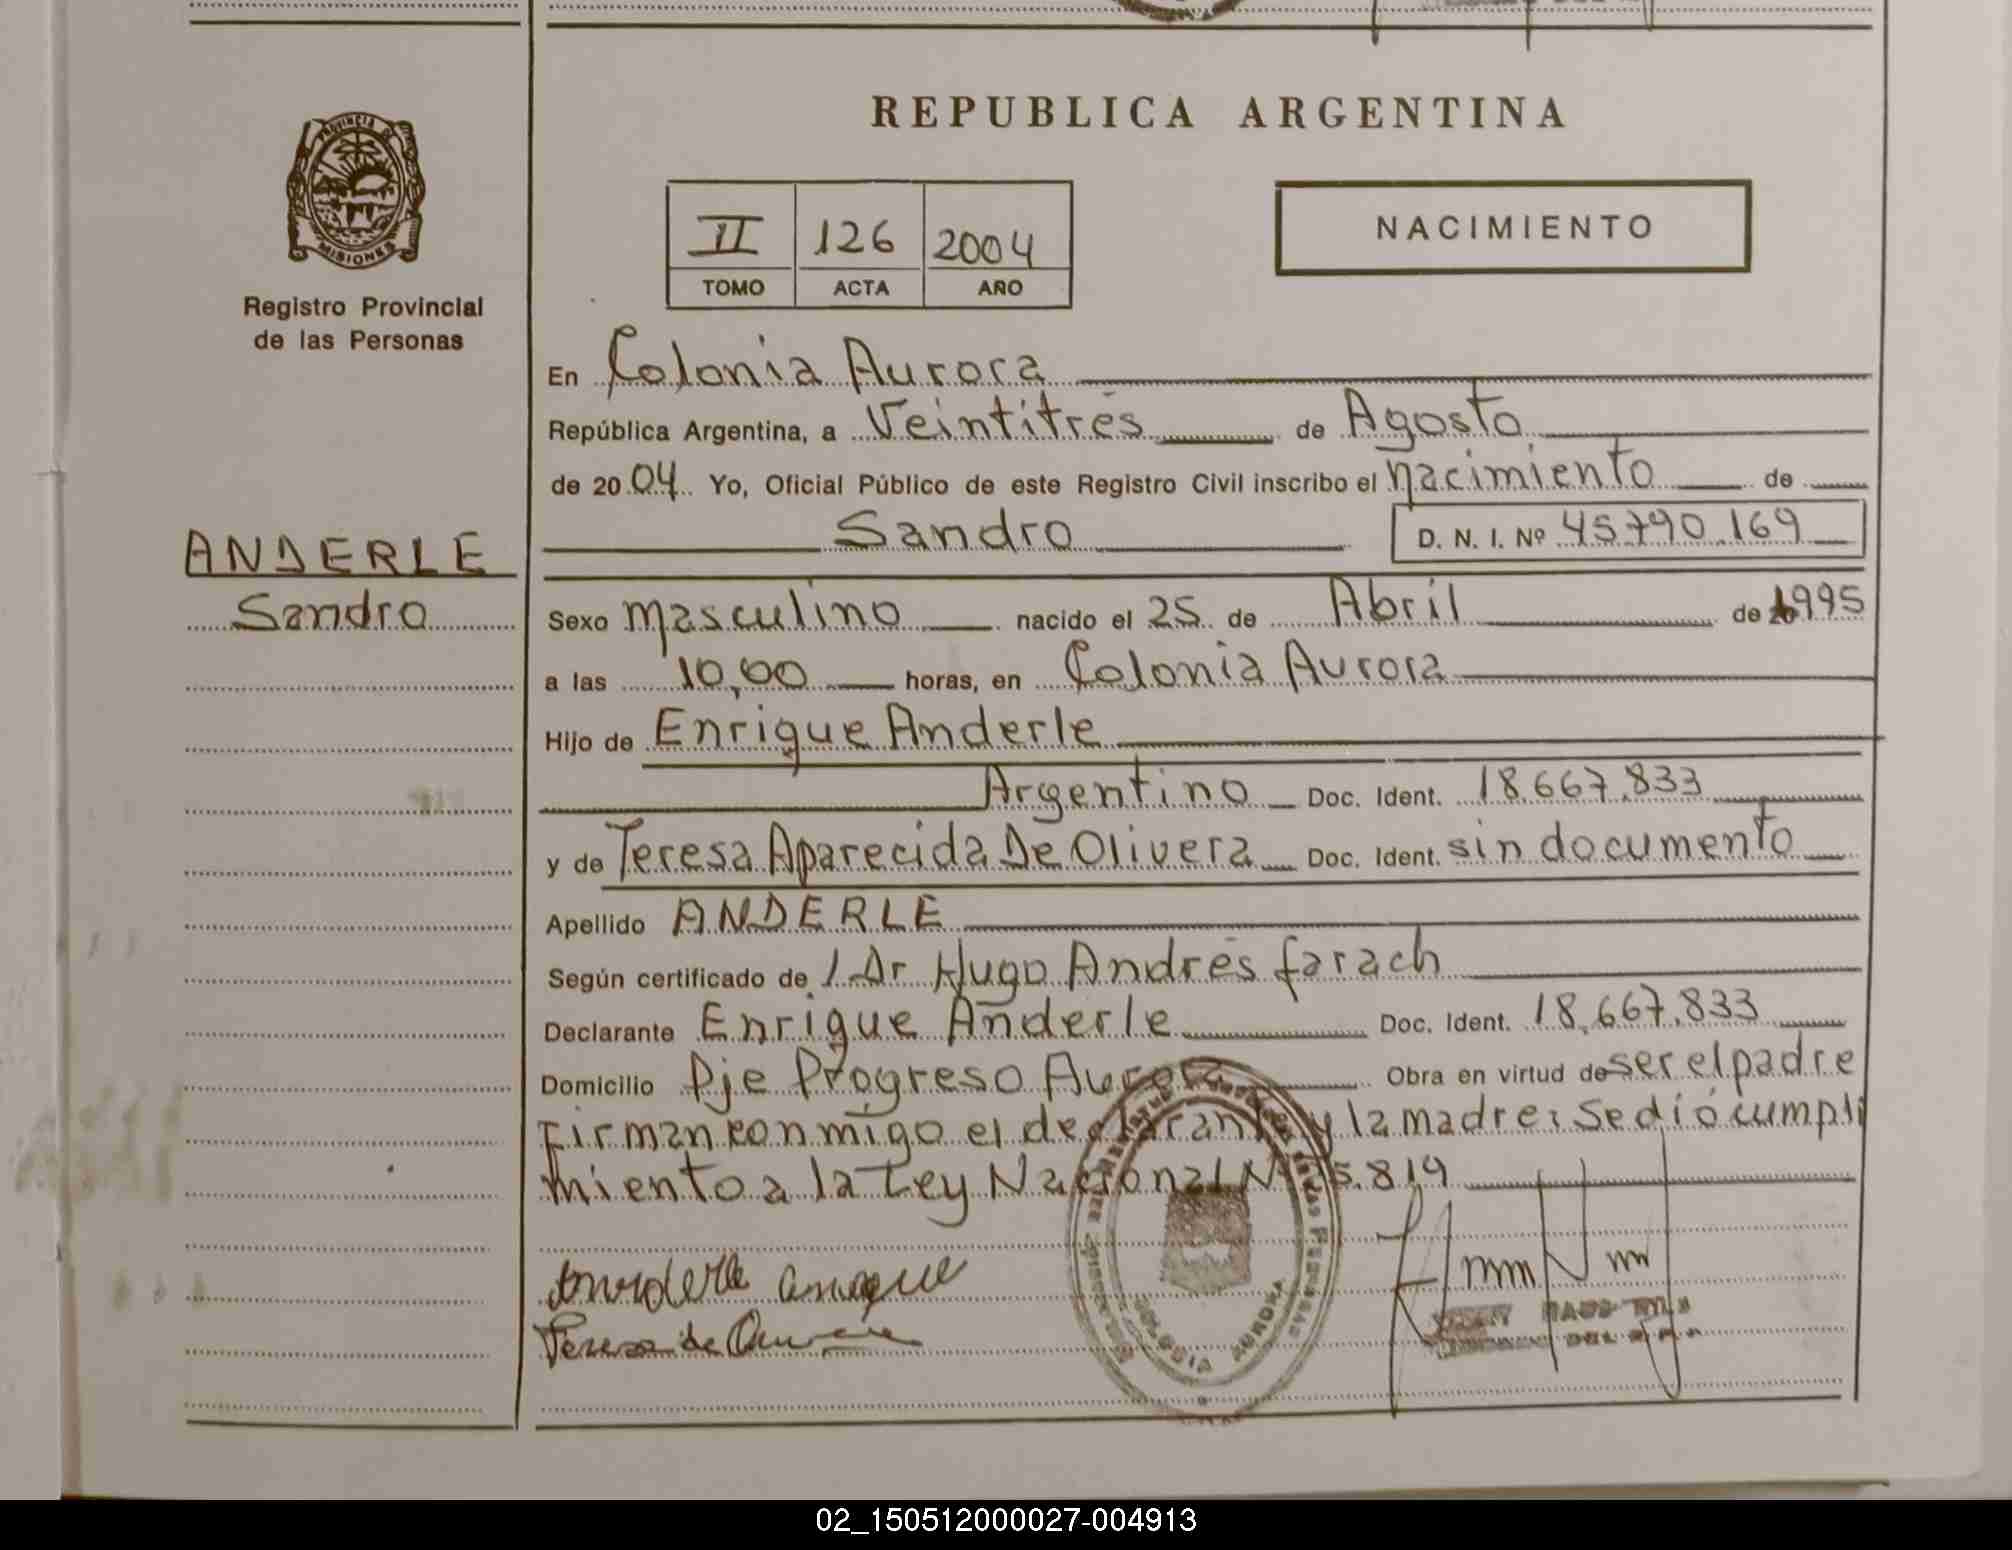 PROVINCIA DE
MISIONES
Registro Provincial
de las Personas
ANDERLE
Sandro
REPUBLICA ARGENTINA
II 126 2004
TOMO ACTA AÑO
NACIMIENTO
En Colonia Aurora
República Argentina, a Veintitrés de Agosto
de 2004. Yo, Oficial Público de este Registro Civil inscribo el nacimiento de
Sandro D. N. I. Nº 45.790.169
Sexo masculino nacido el 25 de Abril de 1995
a las 10,00 horas, en Colonia Aurora
Hijo de Enrique Anderle
Argentino Doc. Ident. 18.667.833
y de Teresa Aparecida De Olivera Doc. Ident. sin documento
Apellido ANDERLE
Según certificado de l Dr Hugo Andrés farach
Declarante Enrique Anderle Doc. Ident. 18.667.833
Domicilio Pje Progreso Aurora Obra en virtud de ser el padre
Firman conmigo el declarante y la madre: Se dió cumpli
miento a la Ley Nacional Nº 25.819
Teresa de
COLONIA AURORA
02_150512000027-004913